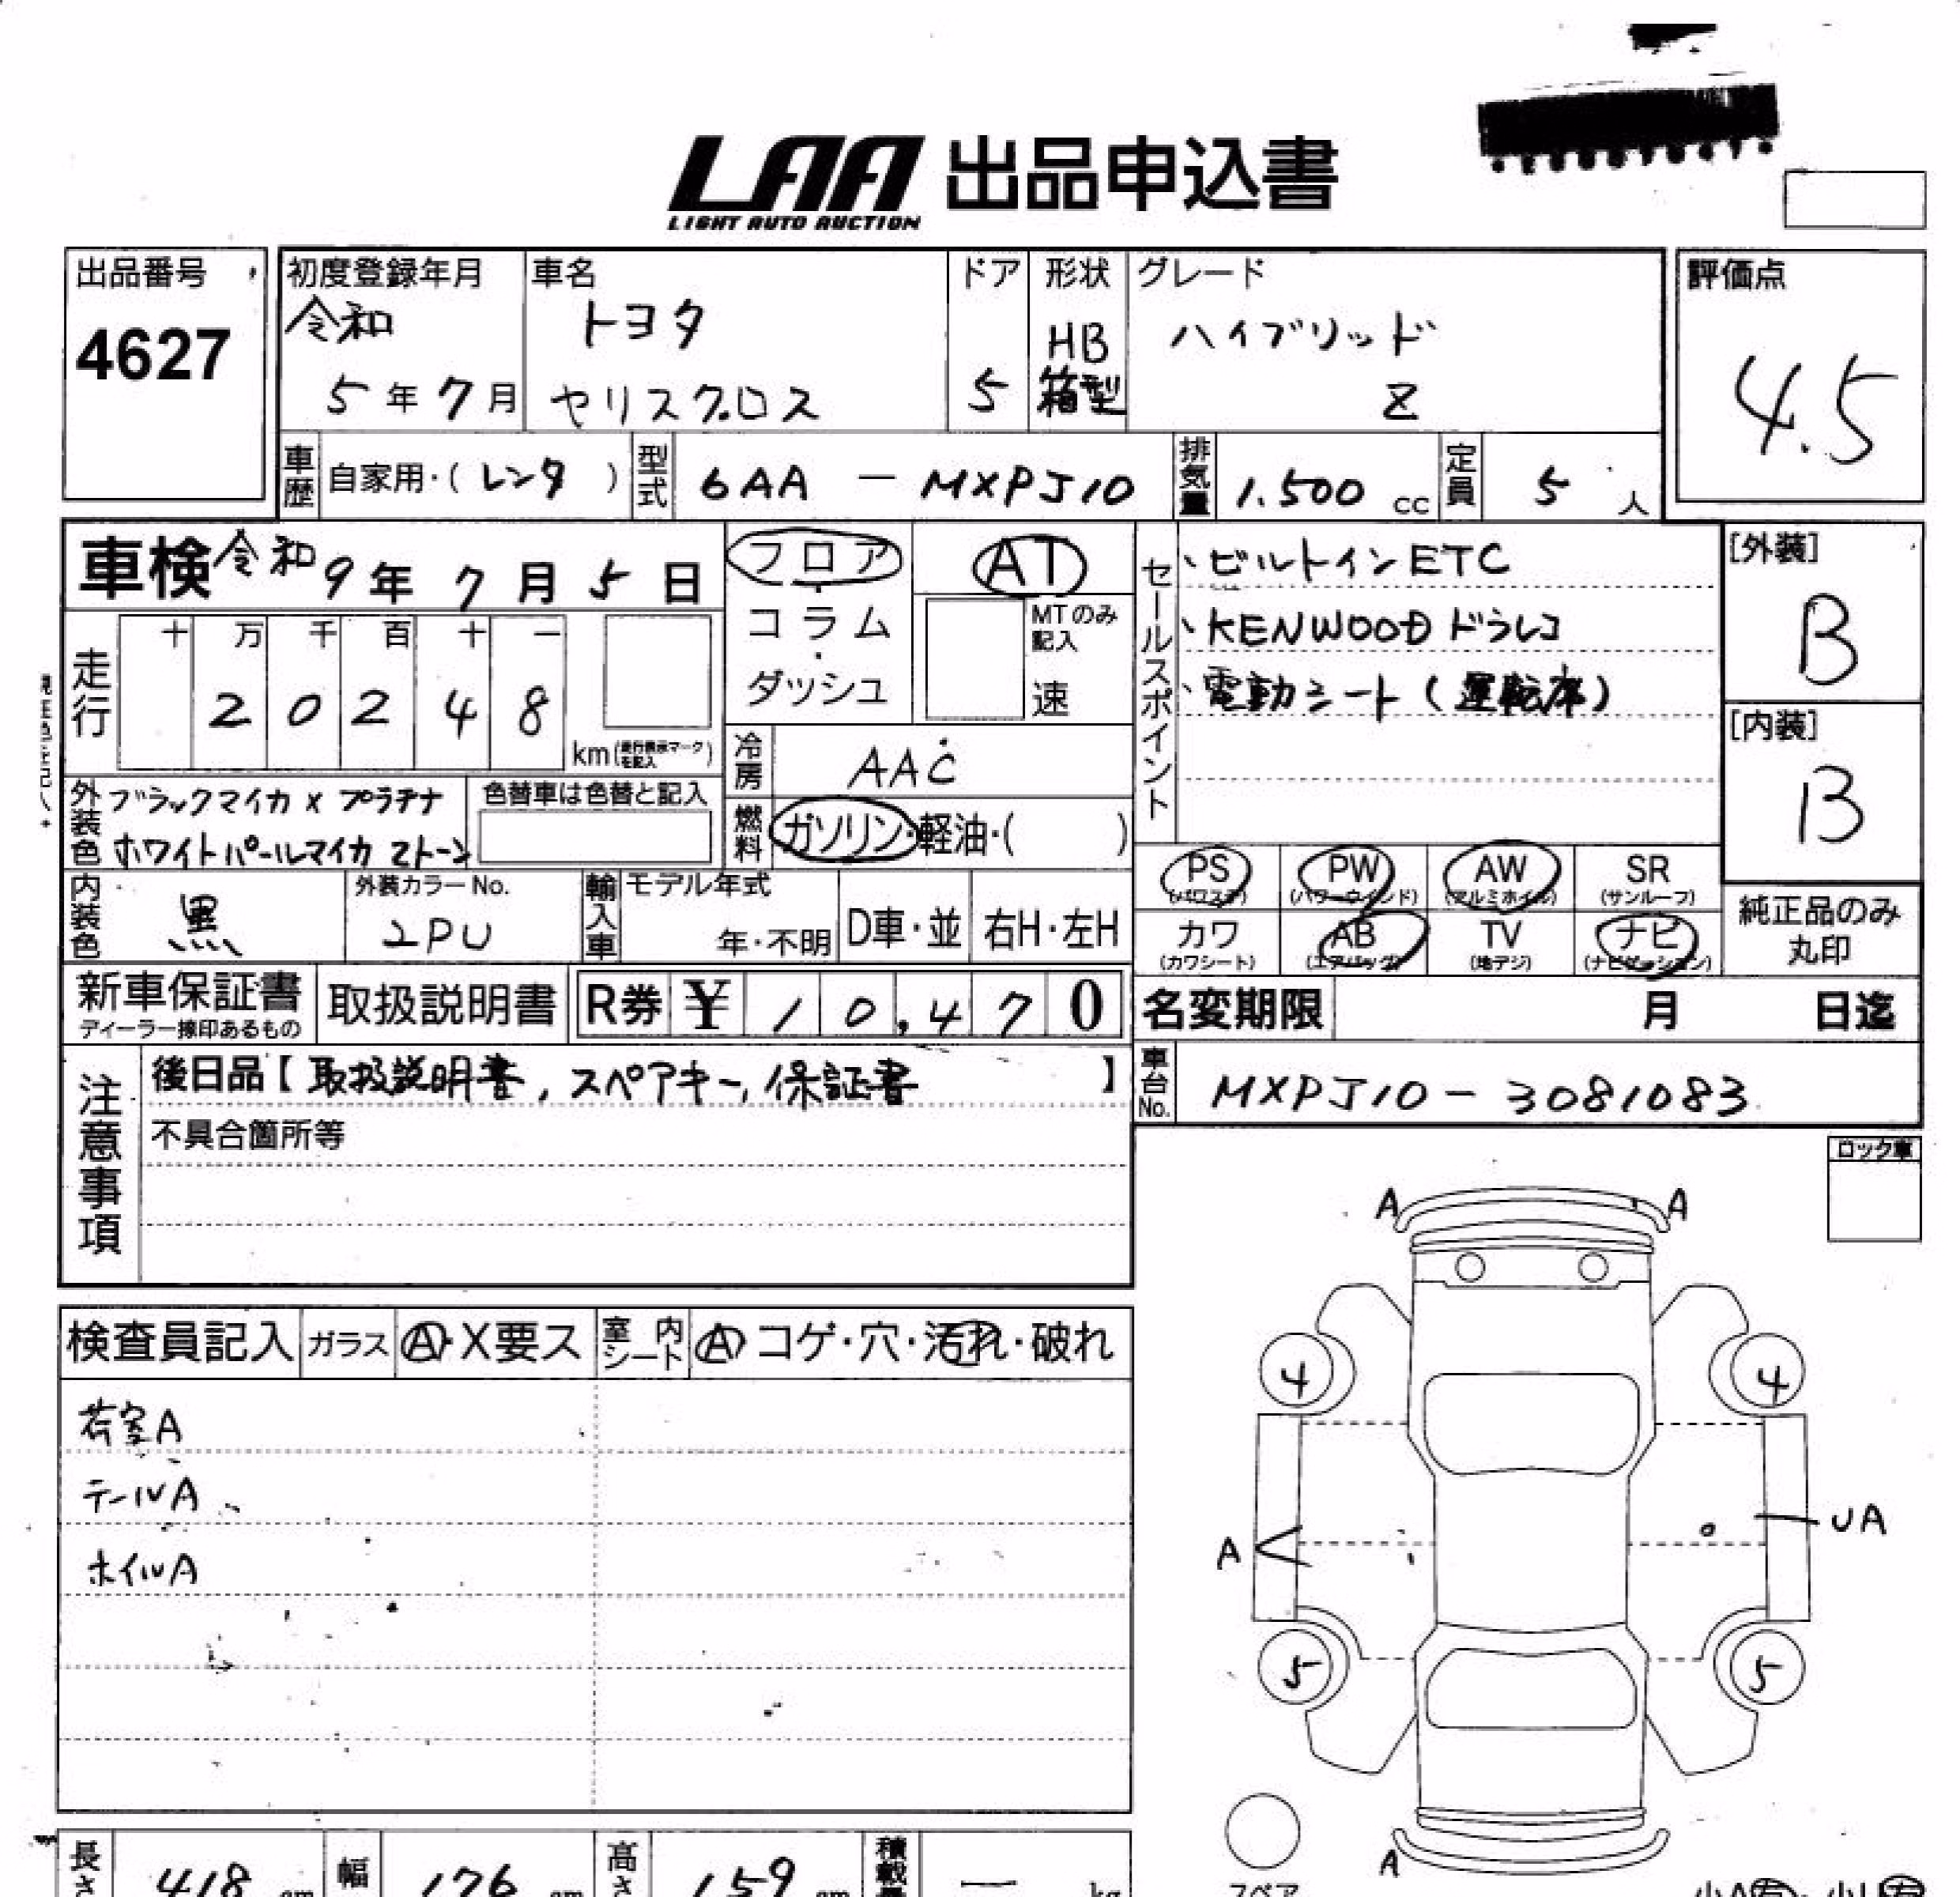 LAA 出品申込書
LIGHT AUTO AUCTION
出品番号
4627
初度登録年月
令和
5年7月
車名
トヨタ
ヤリスクロス
ドア
5
形状
HB
箱型
グレード
ハイブリッド
Z
評価点
4.5
車歴 自家用・(レンタ)
型式 6AA - MXPJ10
排気量 1.500 cc
定員 5人
車検 令和9年7月5日
走行
十 万 千 百 十 一
2 0 2 4 8
km(走行表示マークを記入)
フロア
・
コラム
・
ダッシュ
AT
MTのみ
記入
速
冷房 AAC
燃料 ガソリン・軽油・( )
セールスポイント
、ビルトインETC
、KENWOOD ドラレコ
、電動シート(運転席)
[外装]
B
[内装]
B
外装色 ブラックマイカ×プラチナ
ホワイトパールマイカ 2トーン
色替車は色替と記入
内装色 黒
外装カラーNo.
2PU
輸入車
モデル年式
年・不明
D車・並
右H・左H
PS
(パワステ)
PW
(パワーウインド)
AW
(アルミホイル)
SR
(サンルーフ)
カワ
(カワシート)
AB
(エアバッグ)
TV
(地デジ)
ナビ
(ナビゲーション)
純正品のみ
丸印
新車保証書
ディーラー捺印あるもの
取扱説明書
R券 ¥ 10,470
名変期限 月 日迄
注意事項
後日品【取扱説明書, スペアキー, 保証書】
不具合箇所等
車台No. MXPJ10-3081083
ロック車
検査員記入
ガラス Ⓐ・X要ス
室内シート Ⓐコゲ・穴・汚れ・破れ
荷室A
テールA
ホイルA
A A
4 4
A UA
5 5
A
スペア
長さ 418 cm
幅 176 cm
高さ 159 cm
積載量 — kg